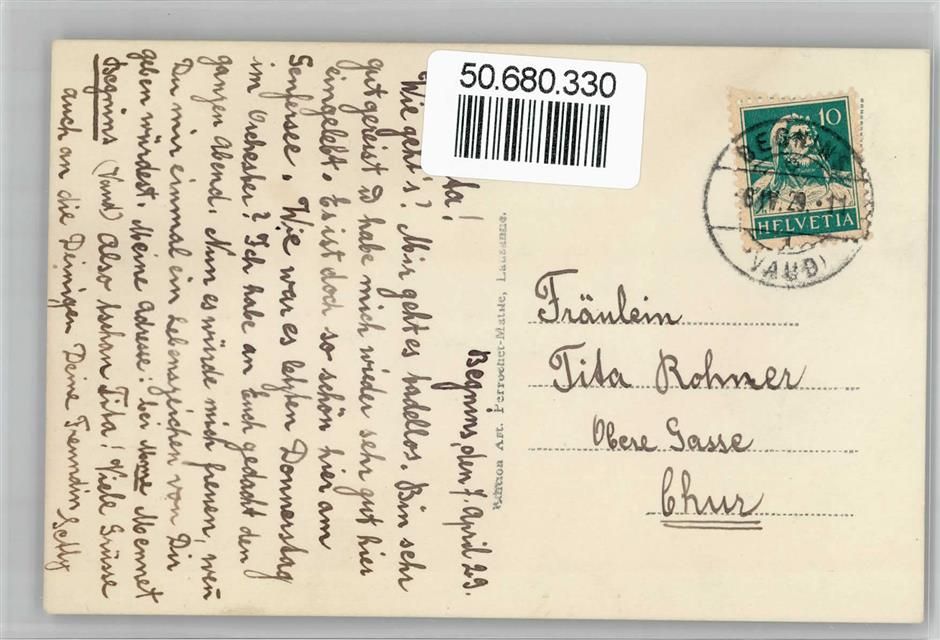 50.680.330
10
HELVETIA
BEGNINS
8.IV.29.-11
(VAUD)
Edition Art. Perrochet-Matile, Lausanne.
Fräulein
Tita Rohner
Obere Gasse
Chur
Begnins, den 7. April 29.
ta!
Wie geht's? Mir geht es tadellos. Bin sehr
gut gereist u habe mich wider sehr gut hier
eingelebt. Es ist doch so schön hier am
Genfersee. Wie war es letzten Donnerstag
im Orchester? Ich habe an Euch gedacht den
ganzen Abend. Nun es würde mich freuen, wen
Du mir einmal ein Lebenszeichen von Dir
geben würdest. Meine Adresse: bei Mme Mennet
Begnins (Vaud) Also tschau Tita! Viele Grüsse
auch an die Deinigen Deine Freundin Getty